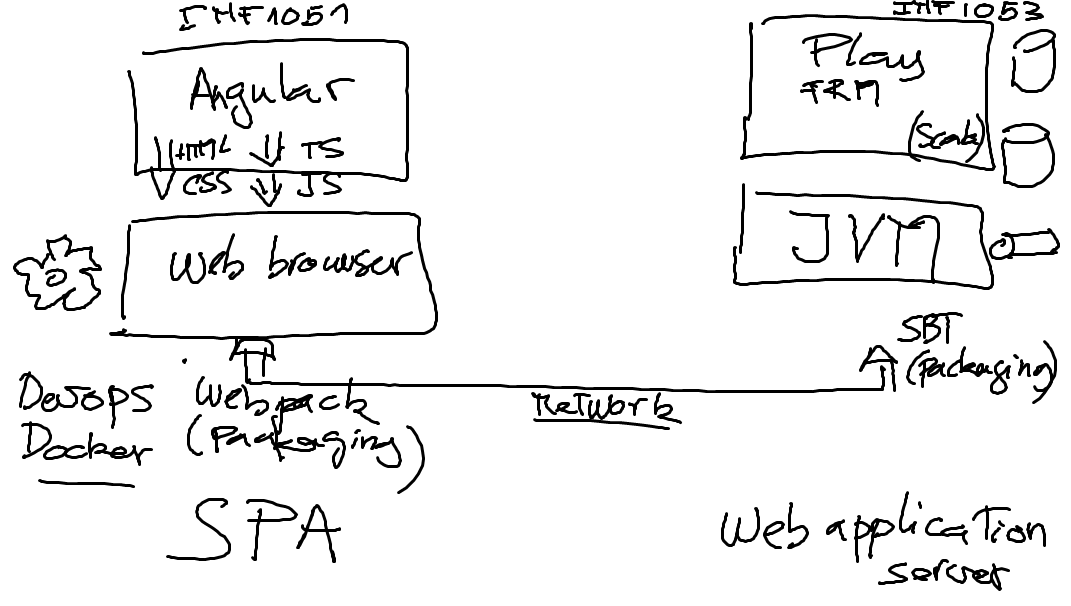 INF1051
Angular
HTML TS
CSS JS
Web browser
Devops
Docker
Webpack
(Packaging)
SPA
Network
INF1053
Play
FRM
(Scala)
JVM
SBT
(Packaging)
Web application
server